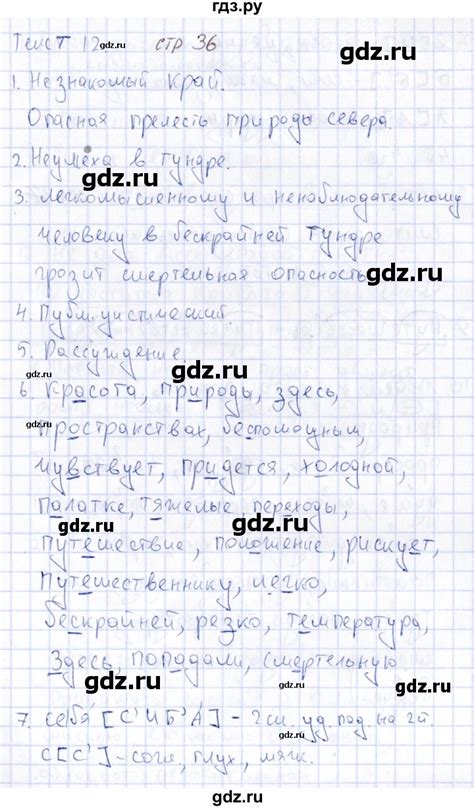 гдз.ру
Текст 12. стр 36
1. Незнакомый край.
Опасная прелесть природы севера.
gdz.ru
2. Неумеха в тундре.
gdz.ru
gdz.ru
3. Легкомысленному и ненаблюдательному
человеку в бескрайней тундре
грозит смертельная опасность
gdz.ru
4. Публицистический.
5. Рассуждение.
gdz.ru
gdz.ru
6. Красота, природы, здесь,
gdz.ru
пространствах, беспомощным,
чувствует, придется, холодной,
gdz.ru
палатке, тяжелые переходы,
gdz.ru
путешествие, положение, рискует,
путешественнику, легко,
gdz.ru
бескрайней, резко, температура,
gdz.ru
Здесь, попадали, смертельную
gdz.ru
7. себя [С'ИБ'А́] - 2сл. уд. под. на 2й.
С[С'] - согл., глух., мягк.
gdz.ru